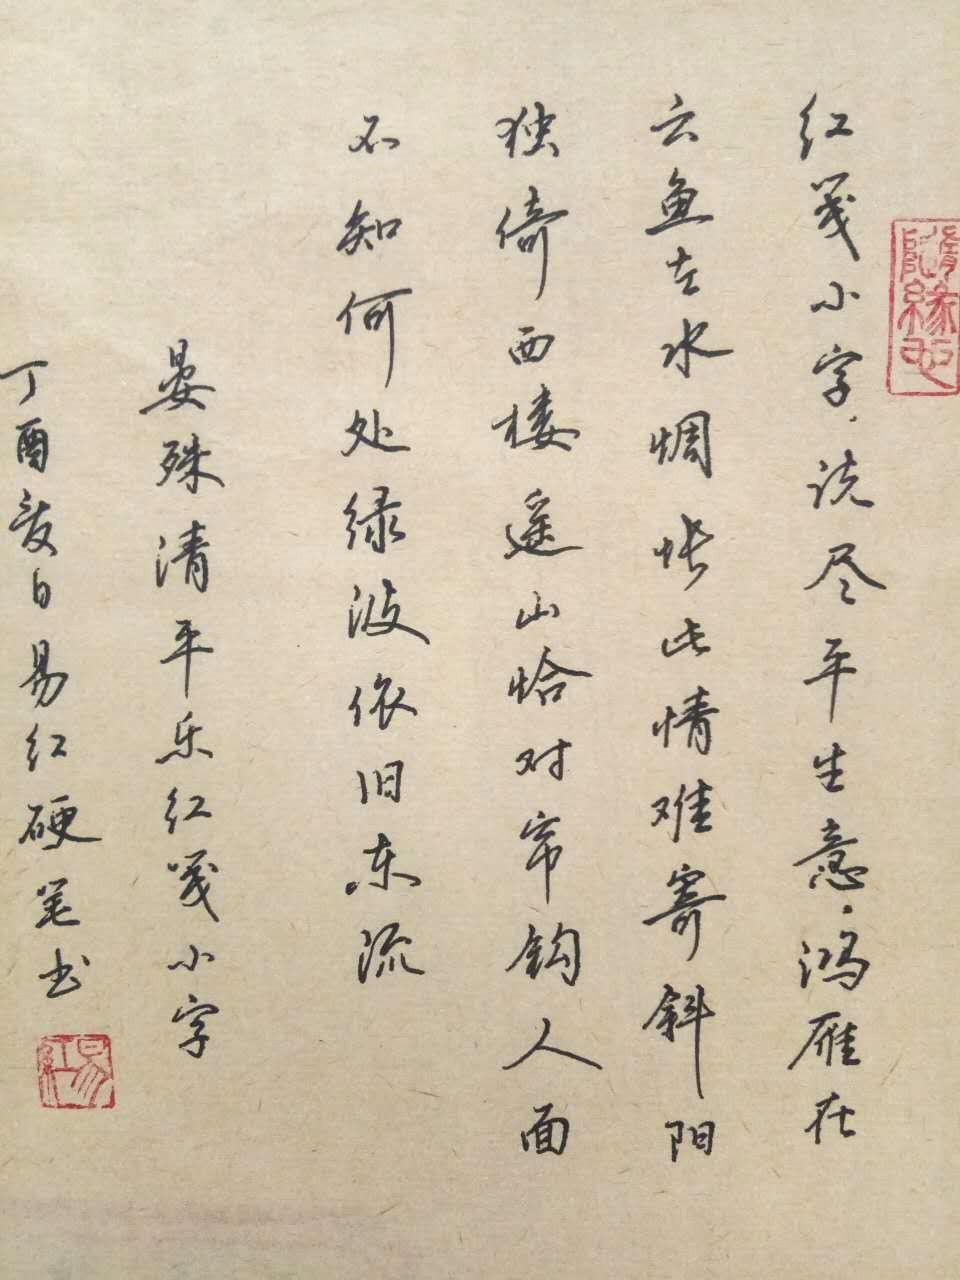 红笺小字说尽平生意鸿雁在
云鱼在水惆怅此情难寄斜阳
独倚西楼遥山恰对帘钩人面
不知何处绿波依旧东流
晏殊清平乐红笺小字
丁酉夏日易红硬笔书
隨緣
易红